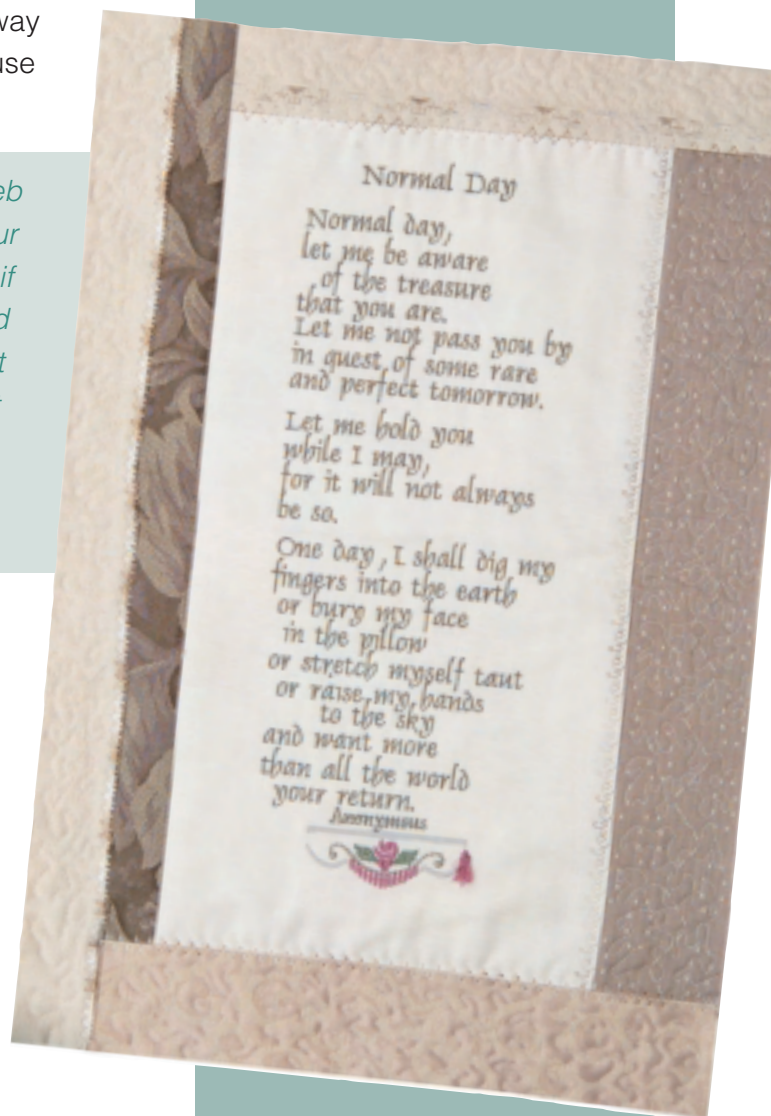 way
use
eb
ur
if
d
t
Normal Day
Normal day,
let me be aware
of the treasure
that you are.
Let me not pass you by
in quest of some rare
and perfect tomorrow.
Let me hold you
while I may,
for it will not always
be so.
One day, I shall dig my
fingers into the earth
or bury my face
in the pillow
or stretch myself taut
or raise my hands
to the sky
and want more
than all the world
your return.
Anonymous